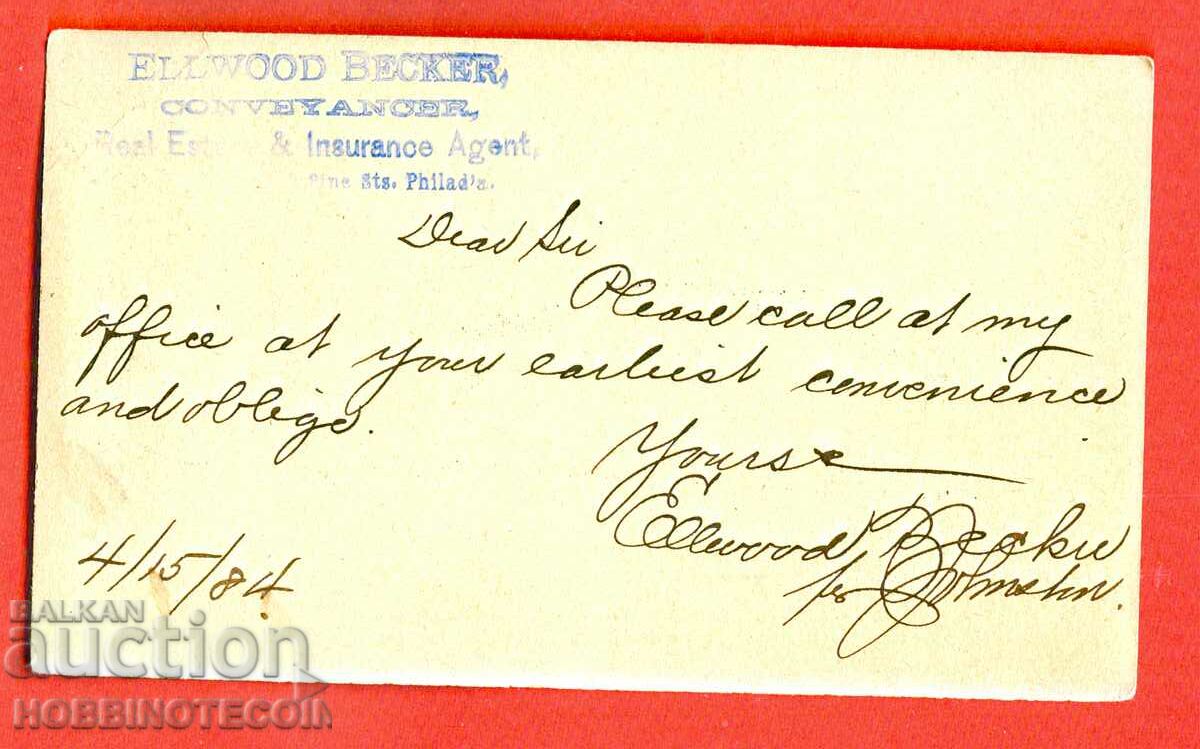 ELLWOOD BECKER,
CONVEYANCER,
Real Estate & Insurance Agent,
Sts. Philad'a.
Dear Sir
Please call at my
office at your earliest convenience
and oblige.
Yours
Ellwood Becker
per Johnston.
4/15/84
BALKAN
auction
HOBBINOTECOIN